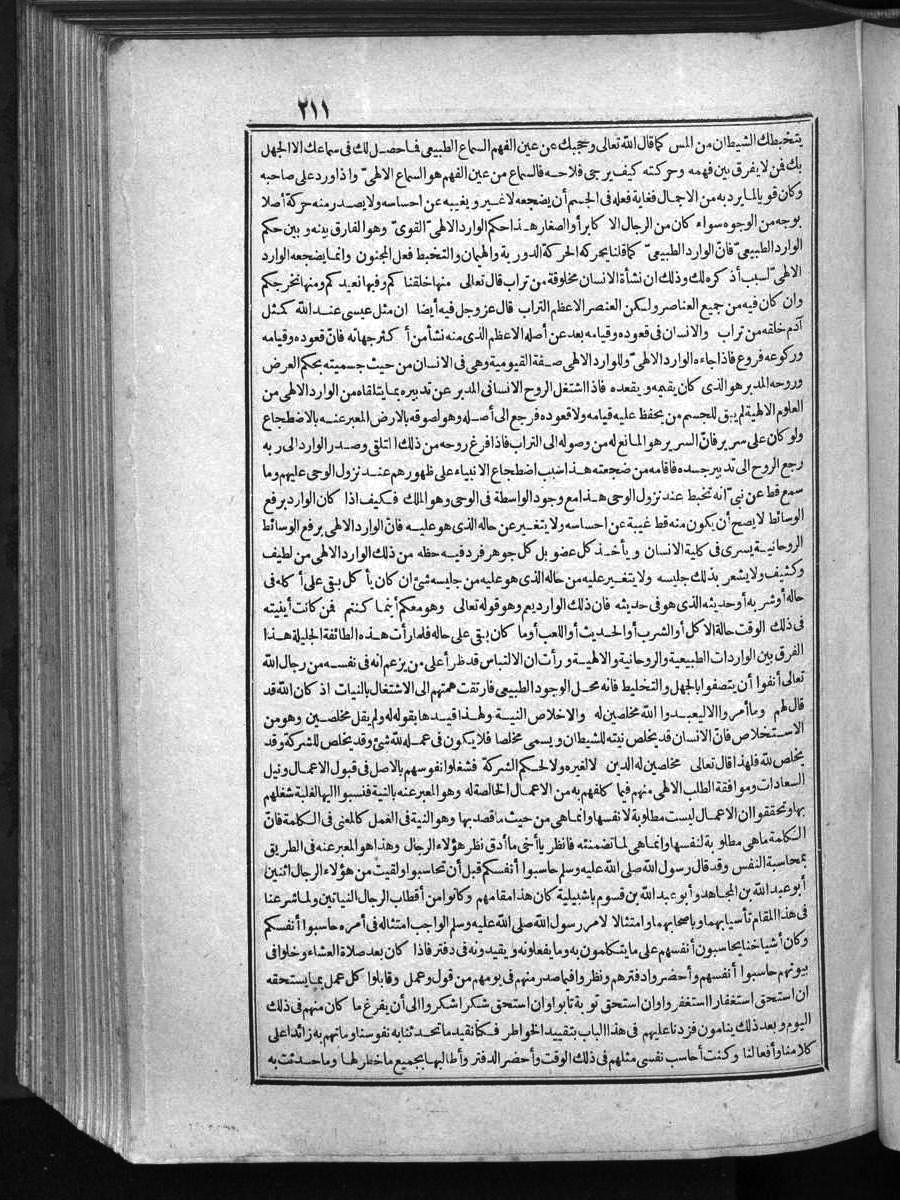 ٢١١
يتخبطك الشيطان من المس كما قال الله تعالى وحجبك عن عين الفهم السماع الطبيعى فما حصل لك فى سماعك الا الجهل
بك فمن لا يفرق بين فهمه وحركته كيف يرجى فلاحه فالسماع من عين الفهم هو السماع الالهىّ واذا ورد على صاحبه
وكان قويا لما يرد به من الاجمال فغاية فعله فى الجسم أن يضجعه لا غير ويغيبه عن احساسه ولا يصدر منه حركة أصلا
بوجه من الوجوه سواء كان من الرجال الاكابر أو الصغار هذا حكم الوارد الالهىّ القوىّ وهو الفارق بينه وبين حكم
الوارد الطبيعىّ فانّ الوارد الطبيعىّ كما قلنا يحركه الحركة الدورية والهيمان والتخبط فعل المجنون وانما يضجعه الوارد
الالهىّ لسبب أذكره لك وذلك ان نشأة الانسان مخلوقة من تراب قال تعالى منها خلقناكم وفيها نعيدكم ومنها نخرجكم
وان كان فيه من جميع العناصر ولكن العنصر الاعظم التراب قال عز وجل فيه أيضا ان مثل عيسى عند الله كمثل
آدم خلقه من تراب والانسان فى قعوده وقيامه بعد عن أصله الاعظم الذى منه نشأ من أكثر جهاته فانّ قعوده وقيامه
وركوعه فروع فاذا جاءه الوارد الالهىّ وللوارد الالهى صفة القيومية وهى فى الانسان من حيث جسميته بحكم العرض
وروحه المدبر هو الذى كان يقيمه ويقعده فاذا اشتغل الروح الانسانى المدبر عن تدبيره بما يتلقاه من الوارد الالهى من
العلوم الالهية لم يبق للجسم من يحفظ عليه قيامه ولا قعوده فرجع الى أصله وهو لصوقه بالارض المعبر عنه بالاضطجاع
ولو كان على سرير فانّ السرير هو المانع له من وصوله الى التراب فاذا فرغ روحه من ذلك التلقى وصدر الوارد الى ربه
رجع الروح الى تدبير جسده فاقامه من ضجعته هذا سبب اضطجاع الانبياء على ظهورهم عند نزول الوحى عليهم وما
سمع قط عن نبىّ انه تخبط عند نزول الوحى هذا مع وجود الواسطة فى الوحى وهو الملك فكيف اذا كان الوارد برفع
الوسائط لا يصح أن يكون منه قط غيبة عن احساسه ولا يتغير عن حاله الذى هو عليه فانّ الوارد الالهى برفع الوسائط
الروحانية يسرى فى كلية الانسان ويأخذ كل عضو بل كل جوهر فرد فيه حظه من ذلك الوارد الالهى من لطيف
وكثيف ولا يشعر بذلك جليسه ولا يتغير عليه من حاله الذى هو عليه من جليسه شئ ان كان يأكل بقى على أكله فى
حاله أو شربه أو حديثه الذى هو فى حديثه فان ذلك الوارد يعم وهو قوله تعالى وهو معكم أينما كنتم فمن كانت أينيته
فى ذلك الوقت حالة الاكل أو الشرب أو الحديث أو اللعب أو ما كان بقى على حاله فلما رأت هذه الطائفة الجليلة هذا
الفرق بين الواردات الطبيعية والروحانية والالهية ورأت ان الالتباس قد ظهر أعلى من يزعم انه فى نفسه من رجال الله
تعالى أنفوا أن يتصفوا بالجهل والتخليط فانه محل الوجود الطبيعى فارتقت همتهم الى الاشتغال بالنيات اذ كان الله قد
قال لهم وما أمروا الا ليعبدوا الله مخلصين له والاخلاص النية ولهذا قيدها بقوله له ولم يقل مخلصين وهو من
الاستخلاص فانّ الانسان قد يخلص نيته للشيطان ويسمى مخلصا فلا يكون فى عمله لله شئ وقد يخلص للشركة وقد
يخلص لله فلهذا قال تعالى مخلصين له الدين لا لغيره ولا لحكم الشركة فشغلوا نفوسهم بالاصل فى قبول الاعمال ونيل
السعادات وموافقة الطلب الالهى منهم فيما كلفهم به من الاعمال الخالصة له وهو المعبر عنه بالنية فنسبوا اليها لغلبة شغلهم
بها وتحققوا ان الاعمال ليست مطلوبة لانفسها وانما هى من حيث ما قصد بها وهو النية فى العمل كالمعنى فى الكلمة فانّ
الكلمة ما هى مطلوبة لنفسها وانما هى لما تضمنته فانظر يا أخى ما أدق نظر هؤلاء الرجال وهذا هو المعبر عنه فى الطريق
بمحاسبة النفس وقد قال رسول الله صلى الله عليه وسلم حاسبوا أنفسكم قبل أن تحاسبوا ولقيت من هؤلاء الرجال اثنين
أبو عبد الله بن المجاهد وأبو عبد الله بن قسوم باشبيلية كان هذا مقامهم وكانوا من أقطاب الرجال النياتين ولما شرعنا
فى هذا المقام تأسيا بهما وباصحابهما وامتثالا لامر رسول الله صلى الله عليه وسلم الواجب امتثاله فى أمره حاسبوا أنفسكم
وكان أشياخنا يحاسبون أنفسهم على ما يتكلمون به وما يفعلونه ويقيدونه فى دفتر فاذا كان بعد صلاة العشاء وخلوا فى
بيوتهم حاسبوا أنفسهم وأحضروا دفترهم ونظروا فيما صدر منهم فى يومهم من قول وعمل وقابلوا كل عمل بما يستحقه
ان استحق استغفارا استغفروا وان استحق توبة تابوا وان استحق شكرا شكروا الى أن يفرغ ما كان منهم فى ذلك
اليوم وبعد ذلك ينامون فزدنا عليهم فى هذا الباب بتقييد الخواطر فكنا نقيد ما تحدثنا به نفوسنا وما تهم به زائدا على
كلامنا وأفعالنا وكنت أحاسب نفسى مثلهم فى ذلك الوقت وأحضر الدفتر وأطالبها بجميع ما خطر لها وما حدثت به